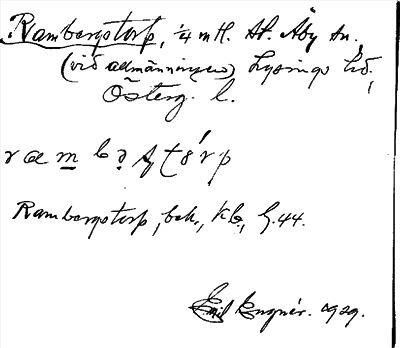 Rambergstorp, 1/4 mtl. St. Åby sn,
(vid allmänningen) Lysings hd,
Österg. l.
Rambergstorp, bek., Kb, G. 44.
Emil Engnér. 1929.